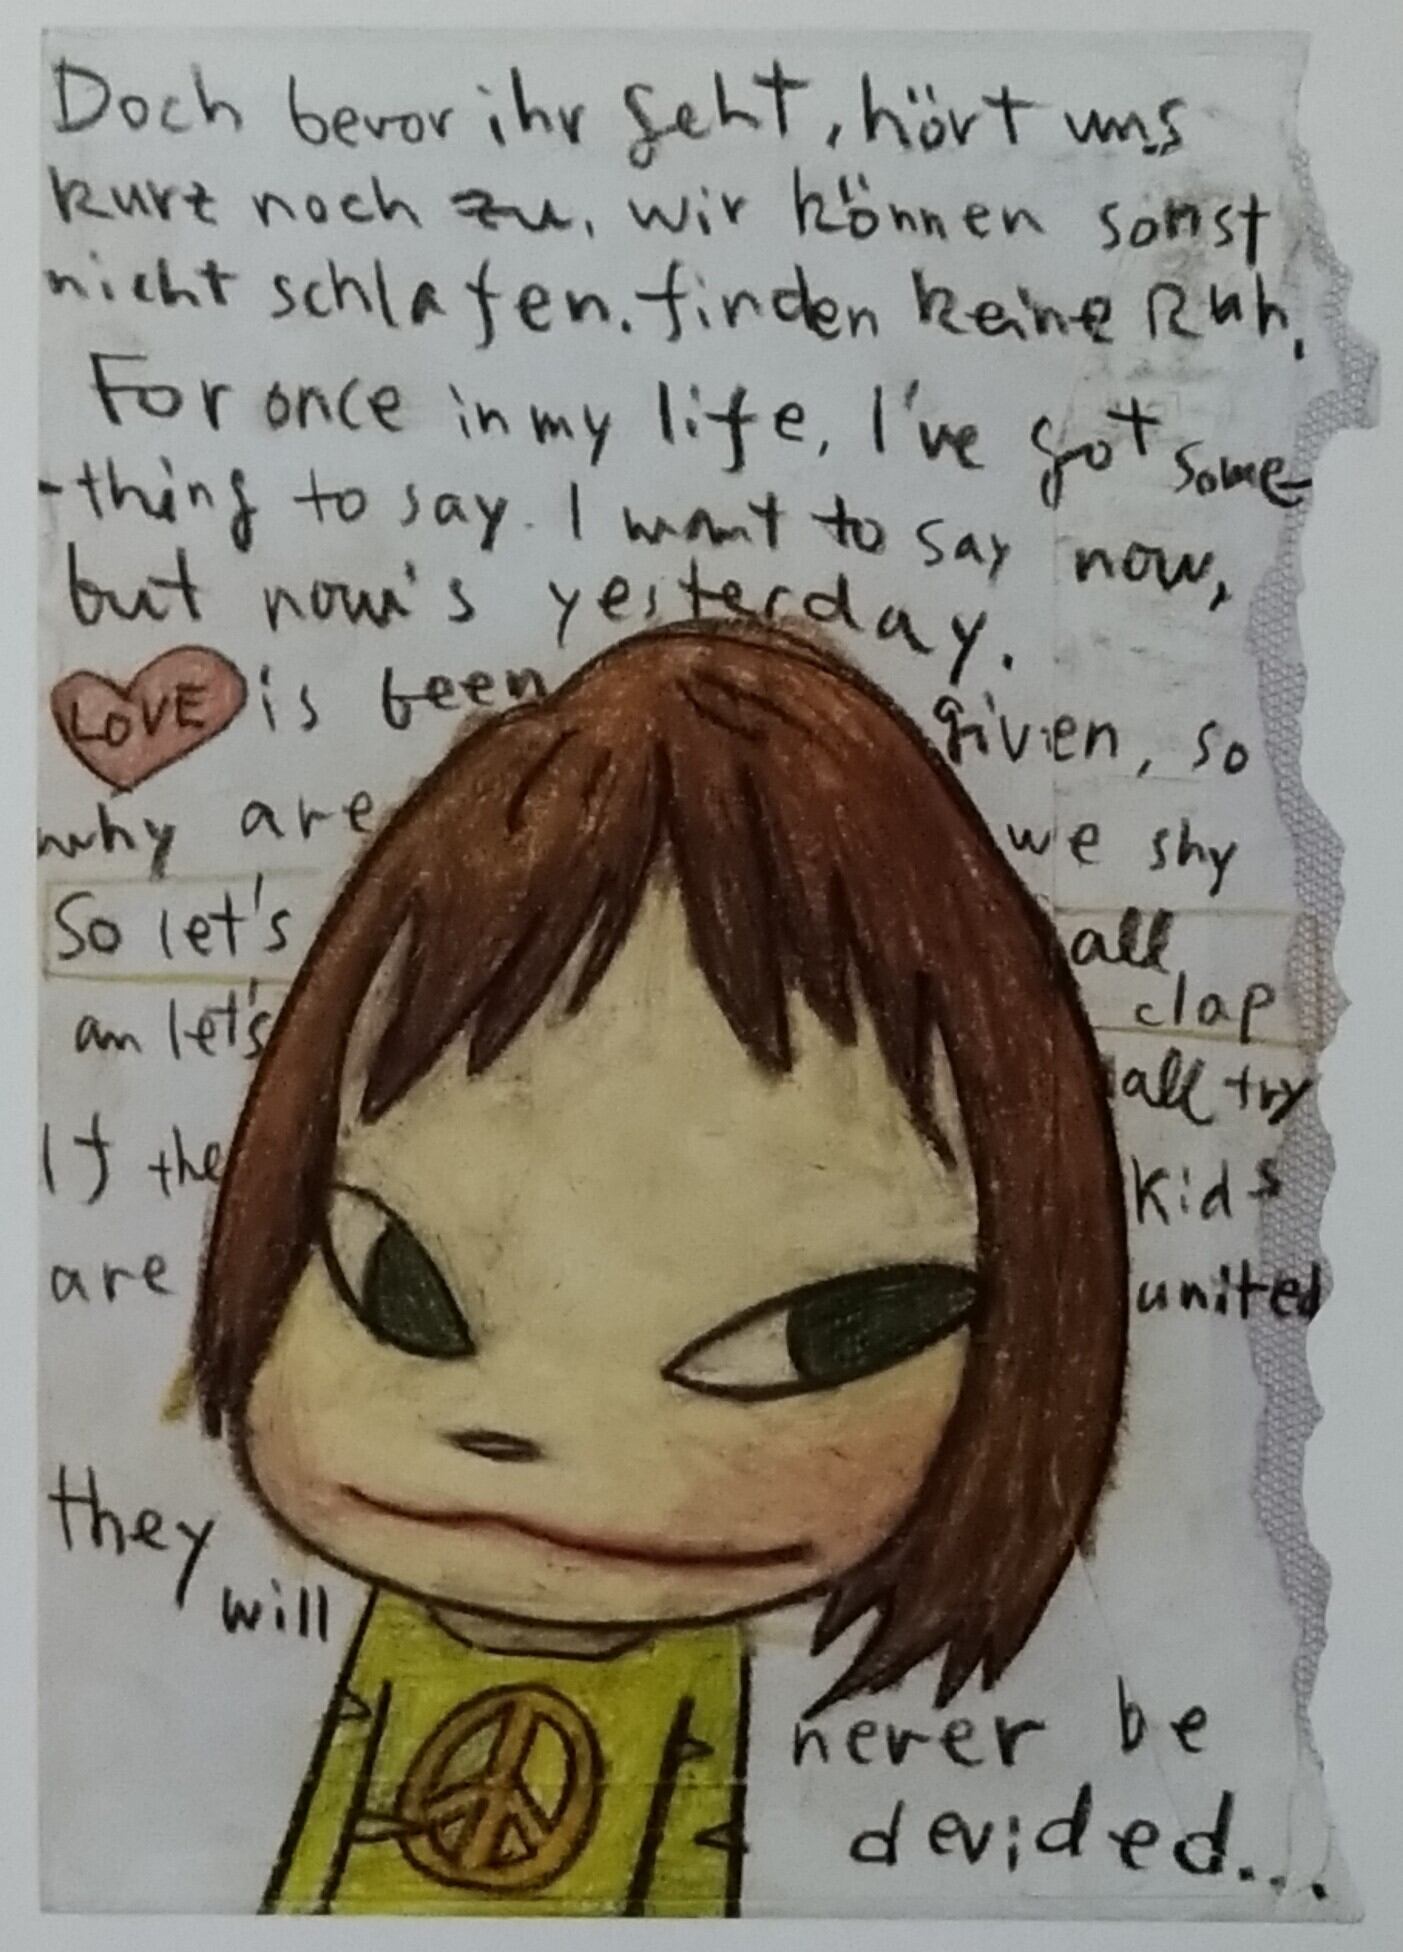 Doch bevor ihr geht, hört uns
kurz noch zu, wir können sonst
nicht schlafen. finden keine Ruh,
For once in my life, I've got some-
-thing to say. I want to say now,
but now's yesterday.
LOVE is been given, so
why are we shy
So let's all clap
an let's all try
If the kids
are united
they will
never be
devided...